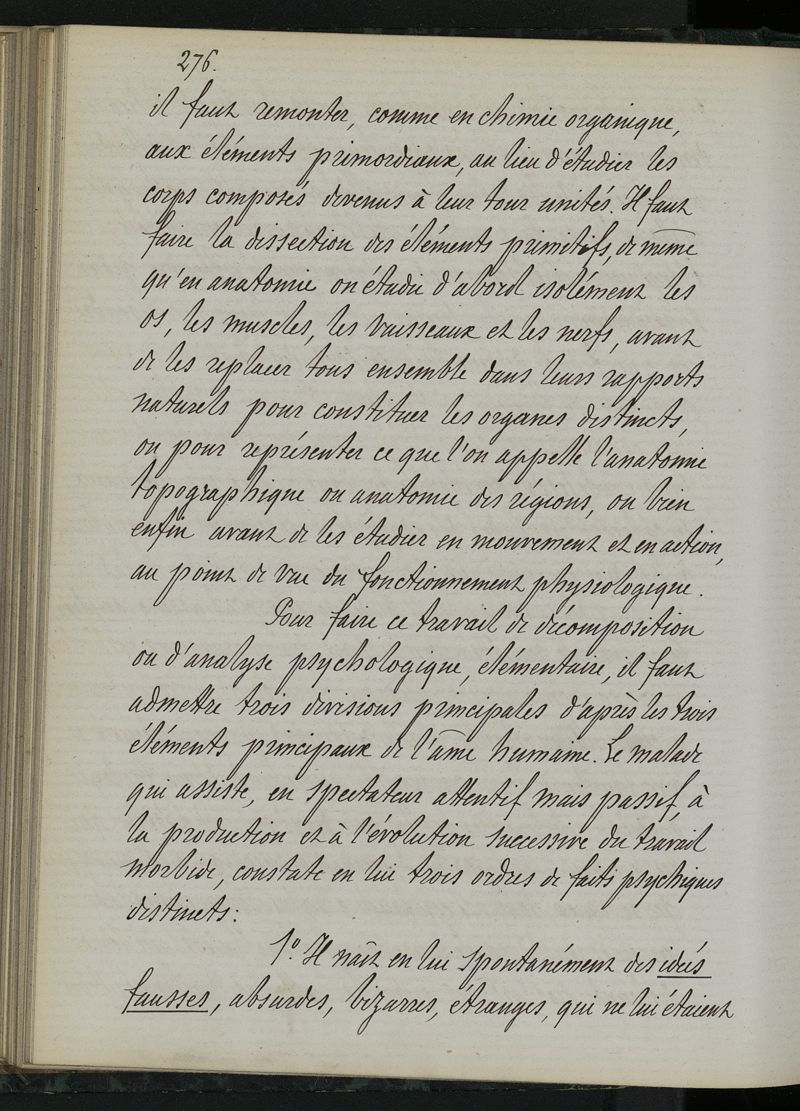 276.
il faut remonter, comme en chimie organique,
aux éléments primordiaux, au lieu d'étudier les
corps composés devenus à leur tour unités. Il faut
faire la dissection des éléments primitifs, de même
qu'en anatomie on étudie d'abord isolément les
os, les muscles, les vaisseaux et les nerfs, avant
de les replacer tous ensemble dans leurs rapports
naturels pour constituer les organes distincts,
ou pour représenter ce que l'on appelle l'anatomie
topographique ou anatomie des régions, ou bien
enfin avant de les étudier en mouvement et en action,
au point de vue du fonctionnement physiologique.
Pour faire ce travail de décomposition
ou d'analyse psychologique, élémentaire, il faut
admettre trois divisions principales d'après les trois
éléments principaux de l'âme humaine. Le malade
qui assiste, en spectateur attentif mais passif, à
la production et à l'évolution successive du travail
morbide, constate en lui trois ordres de faits psychiques
distincts:
1º. Il naît en lui spontanément des idées
fausses, absurdes, bizarres, étranges, qui ne lui étaient